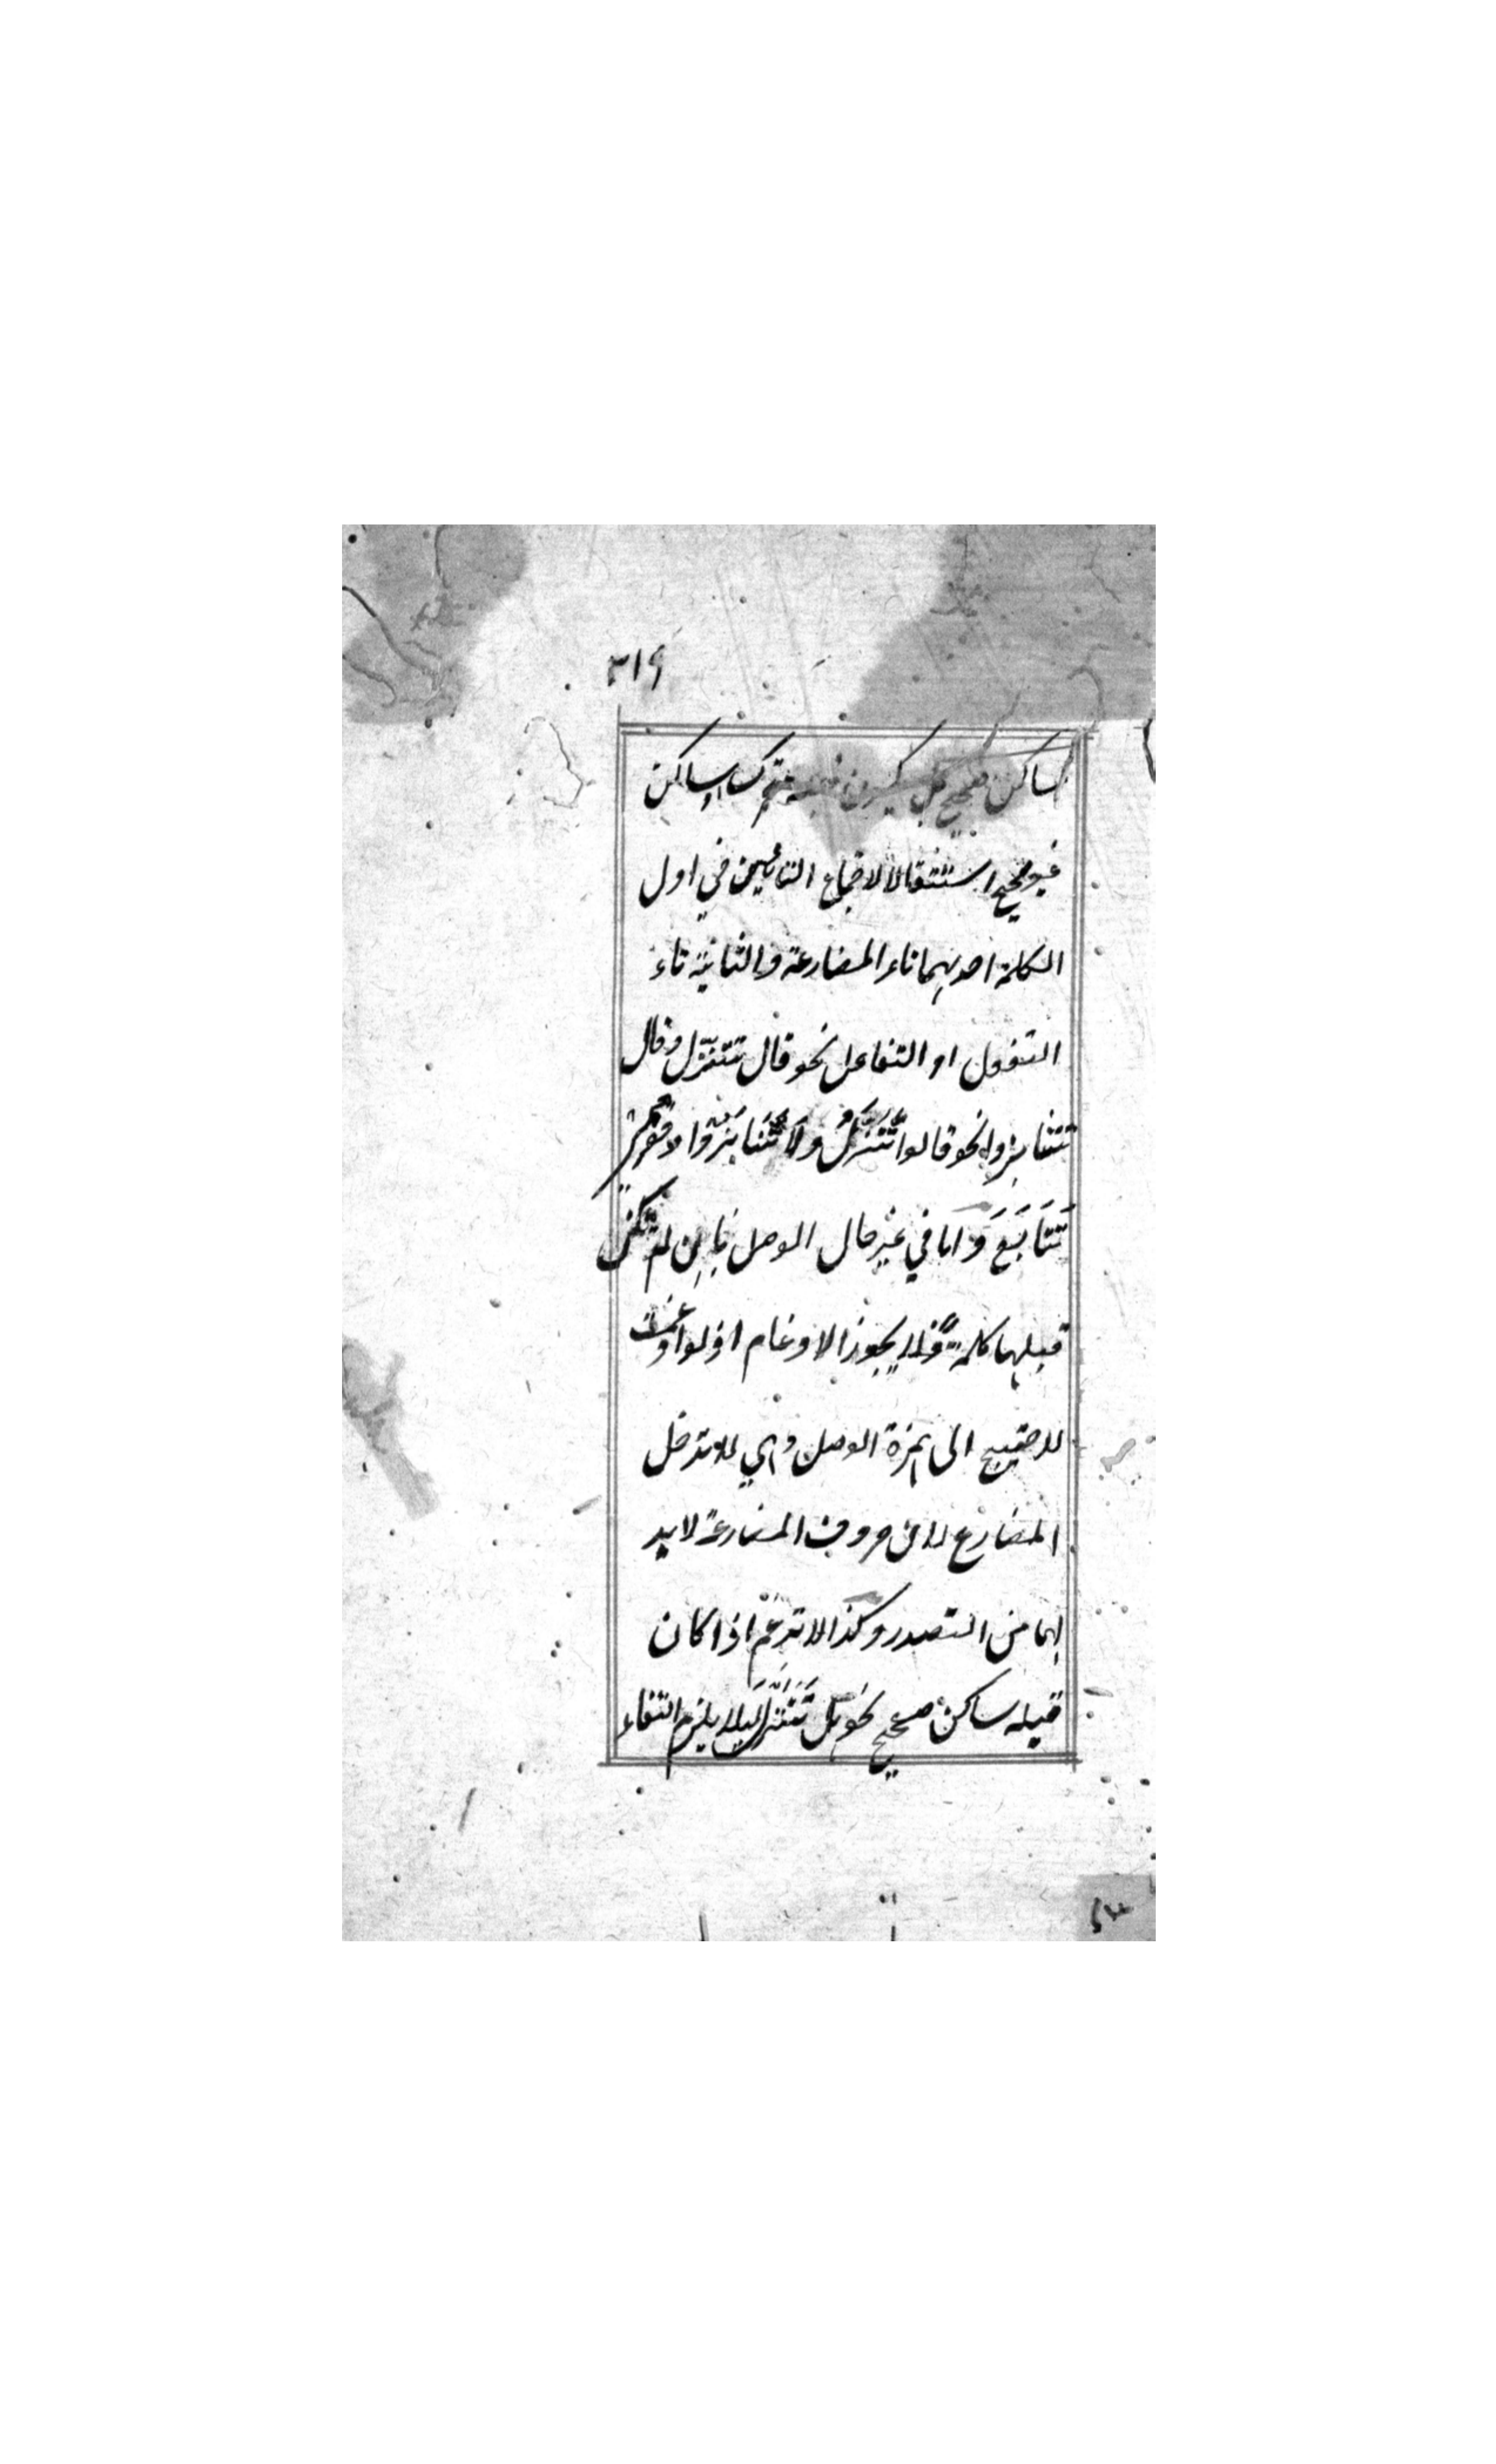 ٣١٩
ساكن صحيح بل يكون قبله متحرك او ساكن
غير صحيح استثقالا لاجتماع التائين في اول
الكلمة احديهما تاء المضارعة والثانية تاء
التفعل او التفاعل نحو قال تتنزل وقال
تتنابزوا نحو قالوا تَّنَزَّلُ ولا تَّنابَزُوا
تَتَابَعَ وَ اما في غير حال الوصل فان لم تكن
قبلهما كلمة فلا يجوز الادغام اذ لو ادغمت
لاحتيج الى همزة الوصل وهي لا تدخل
المضارع لان حروف المضارعة لا بد
لها من التصدر وكذا لا تدغم اذا كان
قبله ساكن صحيح نحو هل تَتَنَزَّلُ لئلا يلزم التقاء